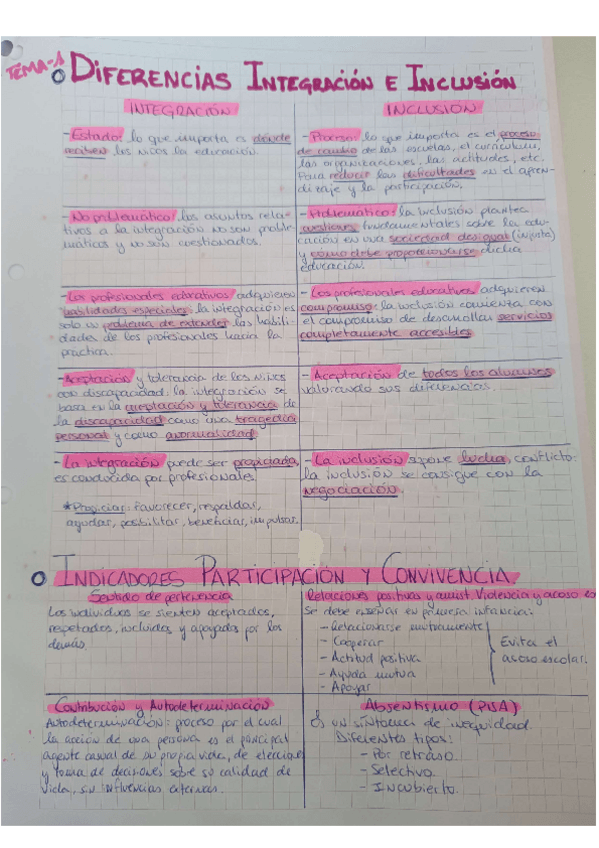 TEMA-1
DIFERENCIAS INTEGRACIÓN E INCLUSIÓN
INTEGRACIÓN
- Estado: lo que importa es dónde
reciben los niños la educación.
- No problemático: los asuntos rela-
tivos a la integración no son proble-
máticos y no son cuestionados.
- Los profesionales educativos adquieren
habilidades especiales: la integración es
solo un problema de extender las habili-
dades de los profesionales hacia la
práctica.
- Aceptación y tolerancia de los niños
con discapacidad: la integración se
basa en la aceptación y tolerancia de
la discapacidad como una tragedia
personal y como anormalidad.
- La integración puede ser propiciada,
es conducida por profesionales.
*Propiciar: favorecer, respaldar,
ayudar, posibilitar, beneficiar, impulsar.
INCLUSIÓN
- Proceso: lo que importa es el proceso
de cambio de las escuelas, el currículum,
las organizaciones, las actitudes, etc.
Para reducir las dificultades en el apren-
dizaje y la participación.
- Problemático: la inclusión plantea
cuestiones fundamentales sobre la edu-
cación en una sociedad desigual (injusta)
y como debe proporcionarse dicha
educación.
- Los profesionales educativos adquieren
compromiso: la inclusión comienza con
el compromiso de desarrollar servicios
completamente accesibles.
- Aceptación de todos los alumnos
valorando sus diferencias.
- La inclusión supone lucha, conflicto:
la inclusión se consigue con la
negociación.
INDICADORES PARTICIPACIÓN Y CONVIVENCIA
Sentido de pertenencia
Los individuos se sienten aceptados,
respetados, incluidos y apoyados por los
demás.
Relaciones positivas y amist. Violencia y acoso es
Se debe enseñar en primera infancia:
- Relacionarse mutuamente
- Cooperar
- Actitud positiva
- Ayuda mutua
- Apoyar
Evita el
acoso escolar.
Contribución y Autodeterminación
Autodeterminación: proceso por el cual
la acción de una persona es el principal
agente causal de su propia vida, de elección
y toma de decisiones sobre su calidad de
vida, sin influencias externas.
Absentismo (PISA)
Es un síntoma de inequidad.
Diferentes tipos:
- Por retraso.
- Selectivo.
- Incubierto.